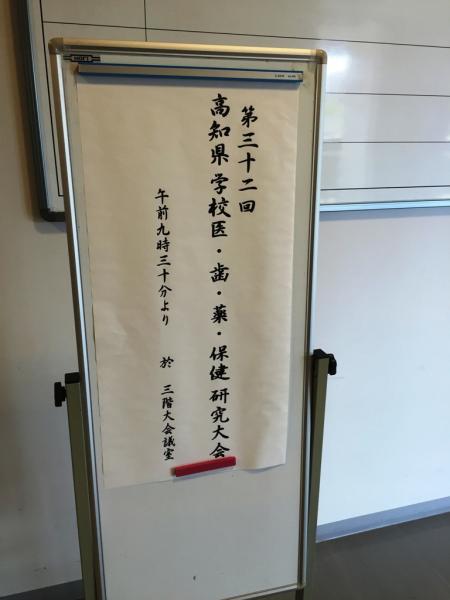 第三十二回
高知県学校医・歯・薬・保健研究大会
午前九時三十分より 於 三階大会議室